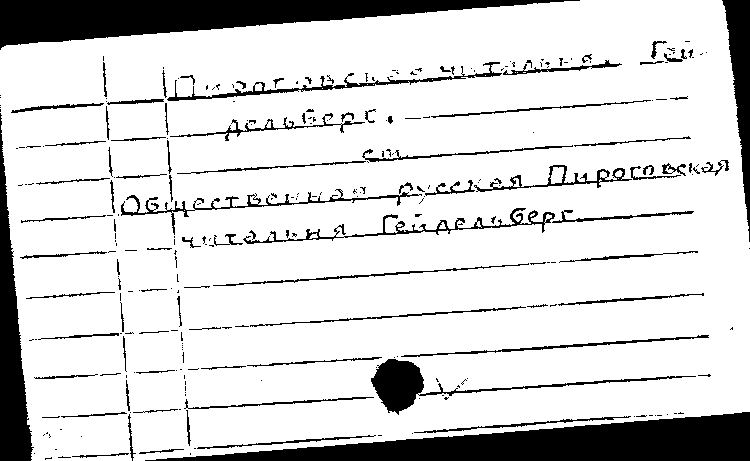 Пироговская читальня. Гей-
дельберг.
см.
Общественная русская Пироговская
читальня. Гейдельберг.